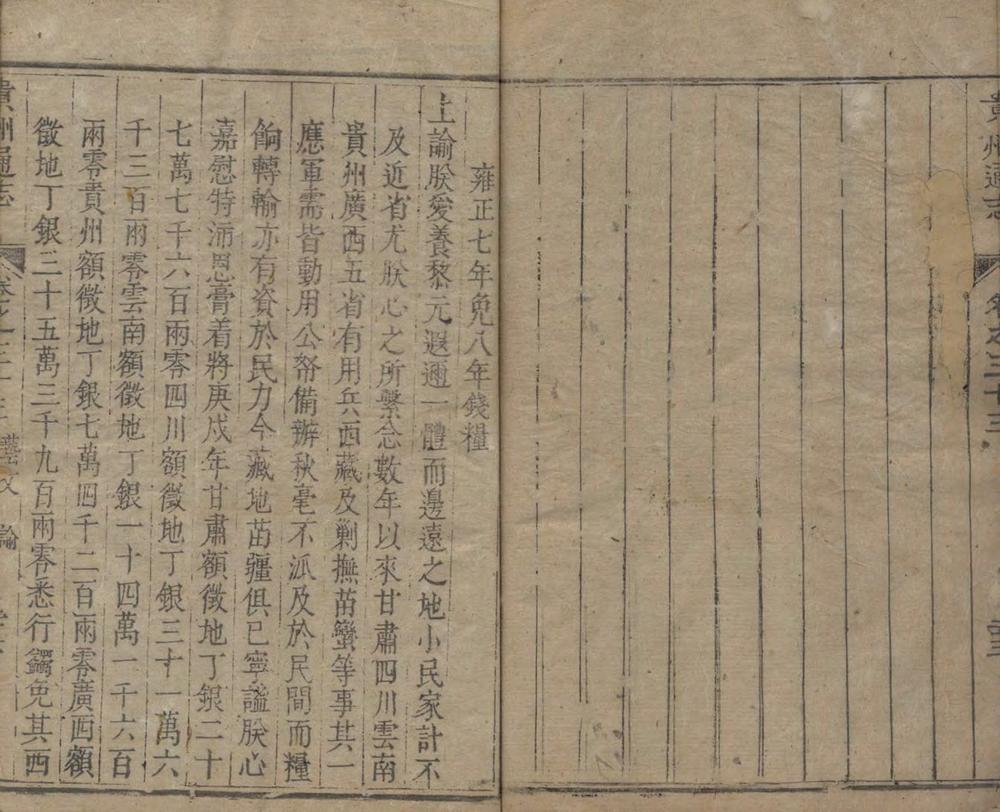 貴州通志
卷之三十三
雍正七年免八年錢糧
上諭朕愛養黎元遐邇一體而邊遠之地小民家計不
及近省尤朕心之所繫念數年以來甘肅四川雲南
貴州廣西五省有用兵西藏及剿撫苗蠻等事其一
應軍需皆動用公帑備辦秋毫不派及於民間而糧
餉轉輸亦有資於民力今藏地苗疆俱已寧謐朕心
嘉慰特沛恩膏着將庚戌年甘肅額徵地丁銀二十
七萬七千六百兩零四川額徵地丁銀三十一萬六
千三百兩零雲南額徵地丁銀一十四萬一千六百
兩零貴州額徵地丁銀七萬四千二百兩零廣西額
徵地丁銀三十五萬三千九百兩零悉行蠲免其西
貴州通志
卷之三十三
藝文
諭